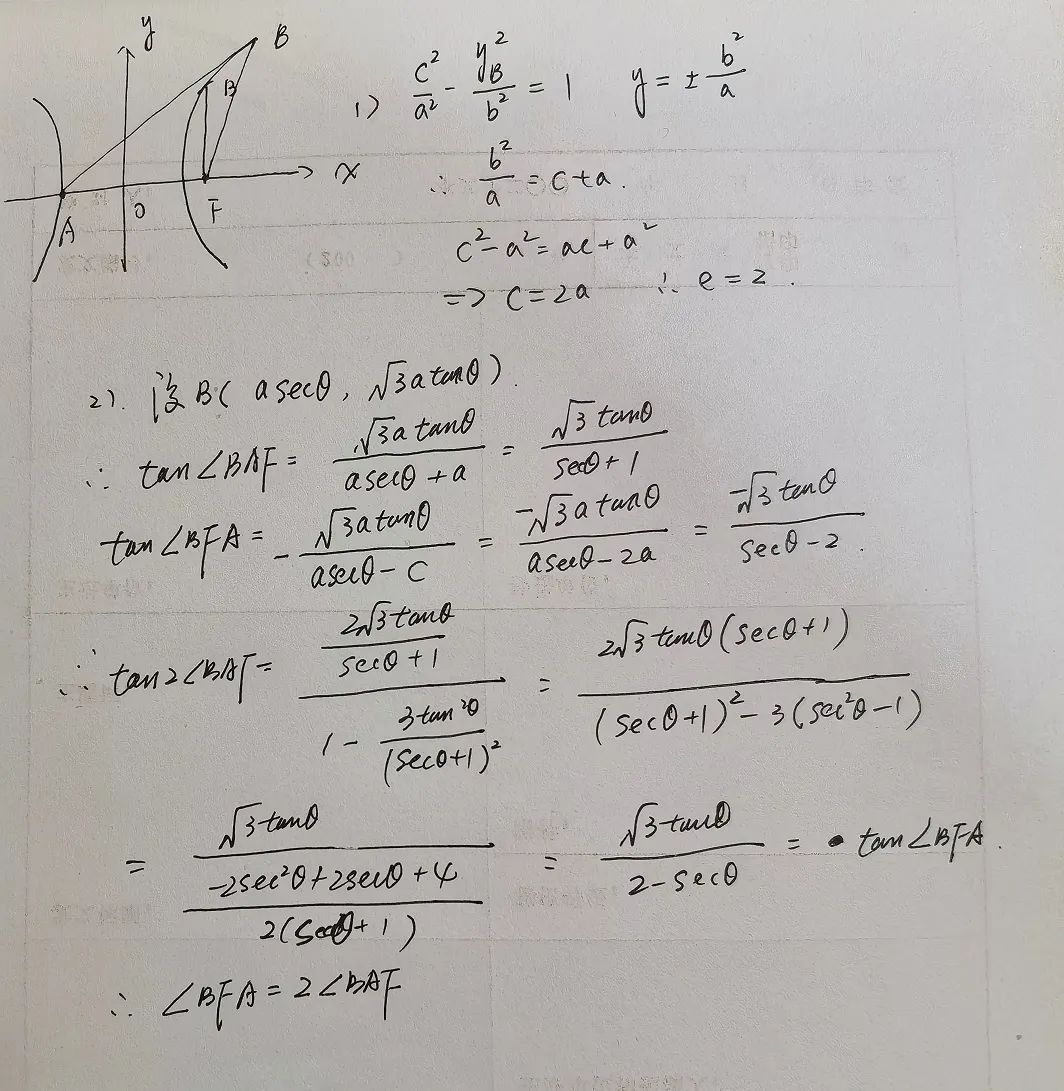 y
B
B
x
A
O
F
1) c²/a² - y_B²/b² = 1   y = ± b²/a
∴ b²/a = c+a.
c²-a² = ac+a²
=> c=2a   ∴ e=2.
2). 设B( a secθ, √3 a tanθ).
∴ tan∠BAF = (√3 a tanθ)/(a secθ + a) = (√3 tanθ)/(secθ+1)
tan∠BFA = - (√3 a tanθ)/(a secθ - c) = (-√3 a tanθ)/(a secθ - 2a) = (-√3 tanθ)/(secθ - 2).
∴ tan2∠BAF = ((2√3 tanθ)/(secθ+1))/(1 - (3tan²θ)/(secθ+1)²) = (2√3 tanθ(secθ+1))/((secθ+1)² - 3(sec²θ-1))
= (√3 tanθ)/((-2sec²θ+2secθ+4)/(2(secθ+1))) = (√3 tanθ)/(2-secθ) = tan∠BFA.
∴ ∠BFA = 2∠BAF